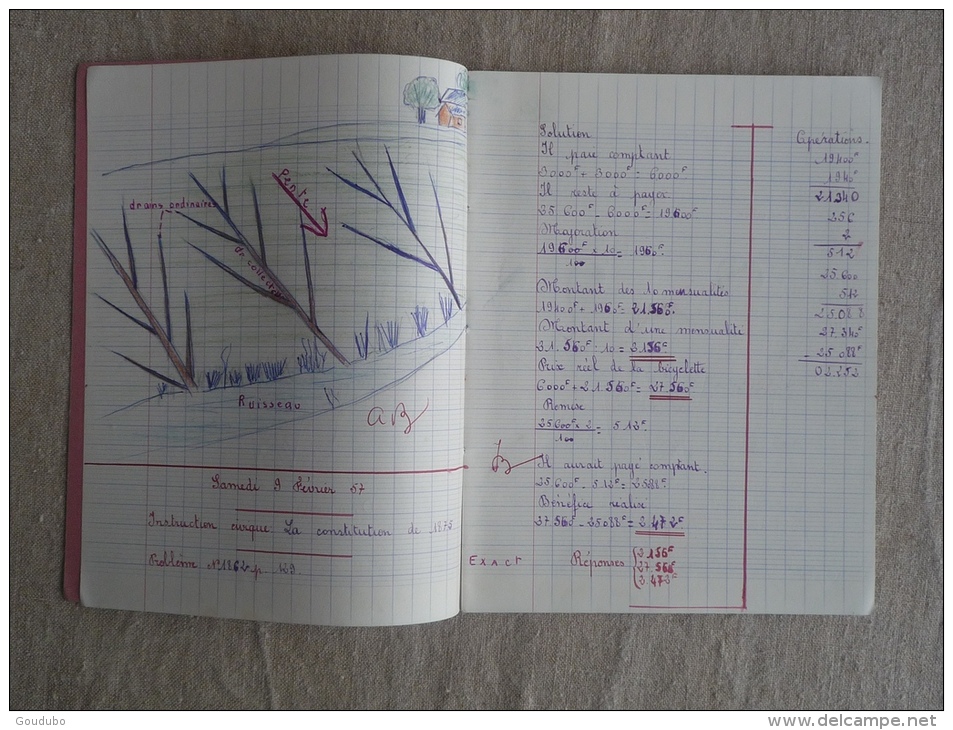 Pente
drains ordinaires
dr. collecteur
Ruisseau
AB
Samedi 9 Février 57
Instruction civique La constitution de 1875
Problème N°1862 p. 429.
Solution
Il paie comptant
3000F + 3000F = 6000F
Il reste à payer
25.600F - 6000F = 19.600F
Majoration
19.600F x 10 = 1960F.
100
Montant des 10 mensualités
19400F + 1960F = 21.560F.
Montant d'une mensualité
21.560F : 10 = 2156F.
Prix réel de la bicyclette
6000F + 21.560F = 27.560F
Remise
25600F x 2 = 512F.
100
B
Il aurait payé comptant.
25.600F - 512F = 2588F.
Bénéfice réalisé
27560F - 25088F = 2472F
Exact
Réponses
2156F
27.560F
2.472F
Opérations.
19400F
1940F
21.340
256
2
512
25.600
512
25.088
27.340F
- 25.088F
02.252
Goudubo
delcampe.net